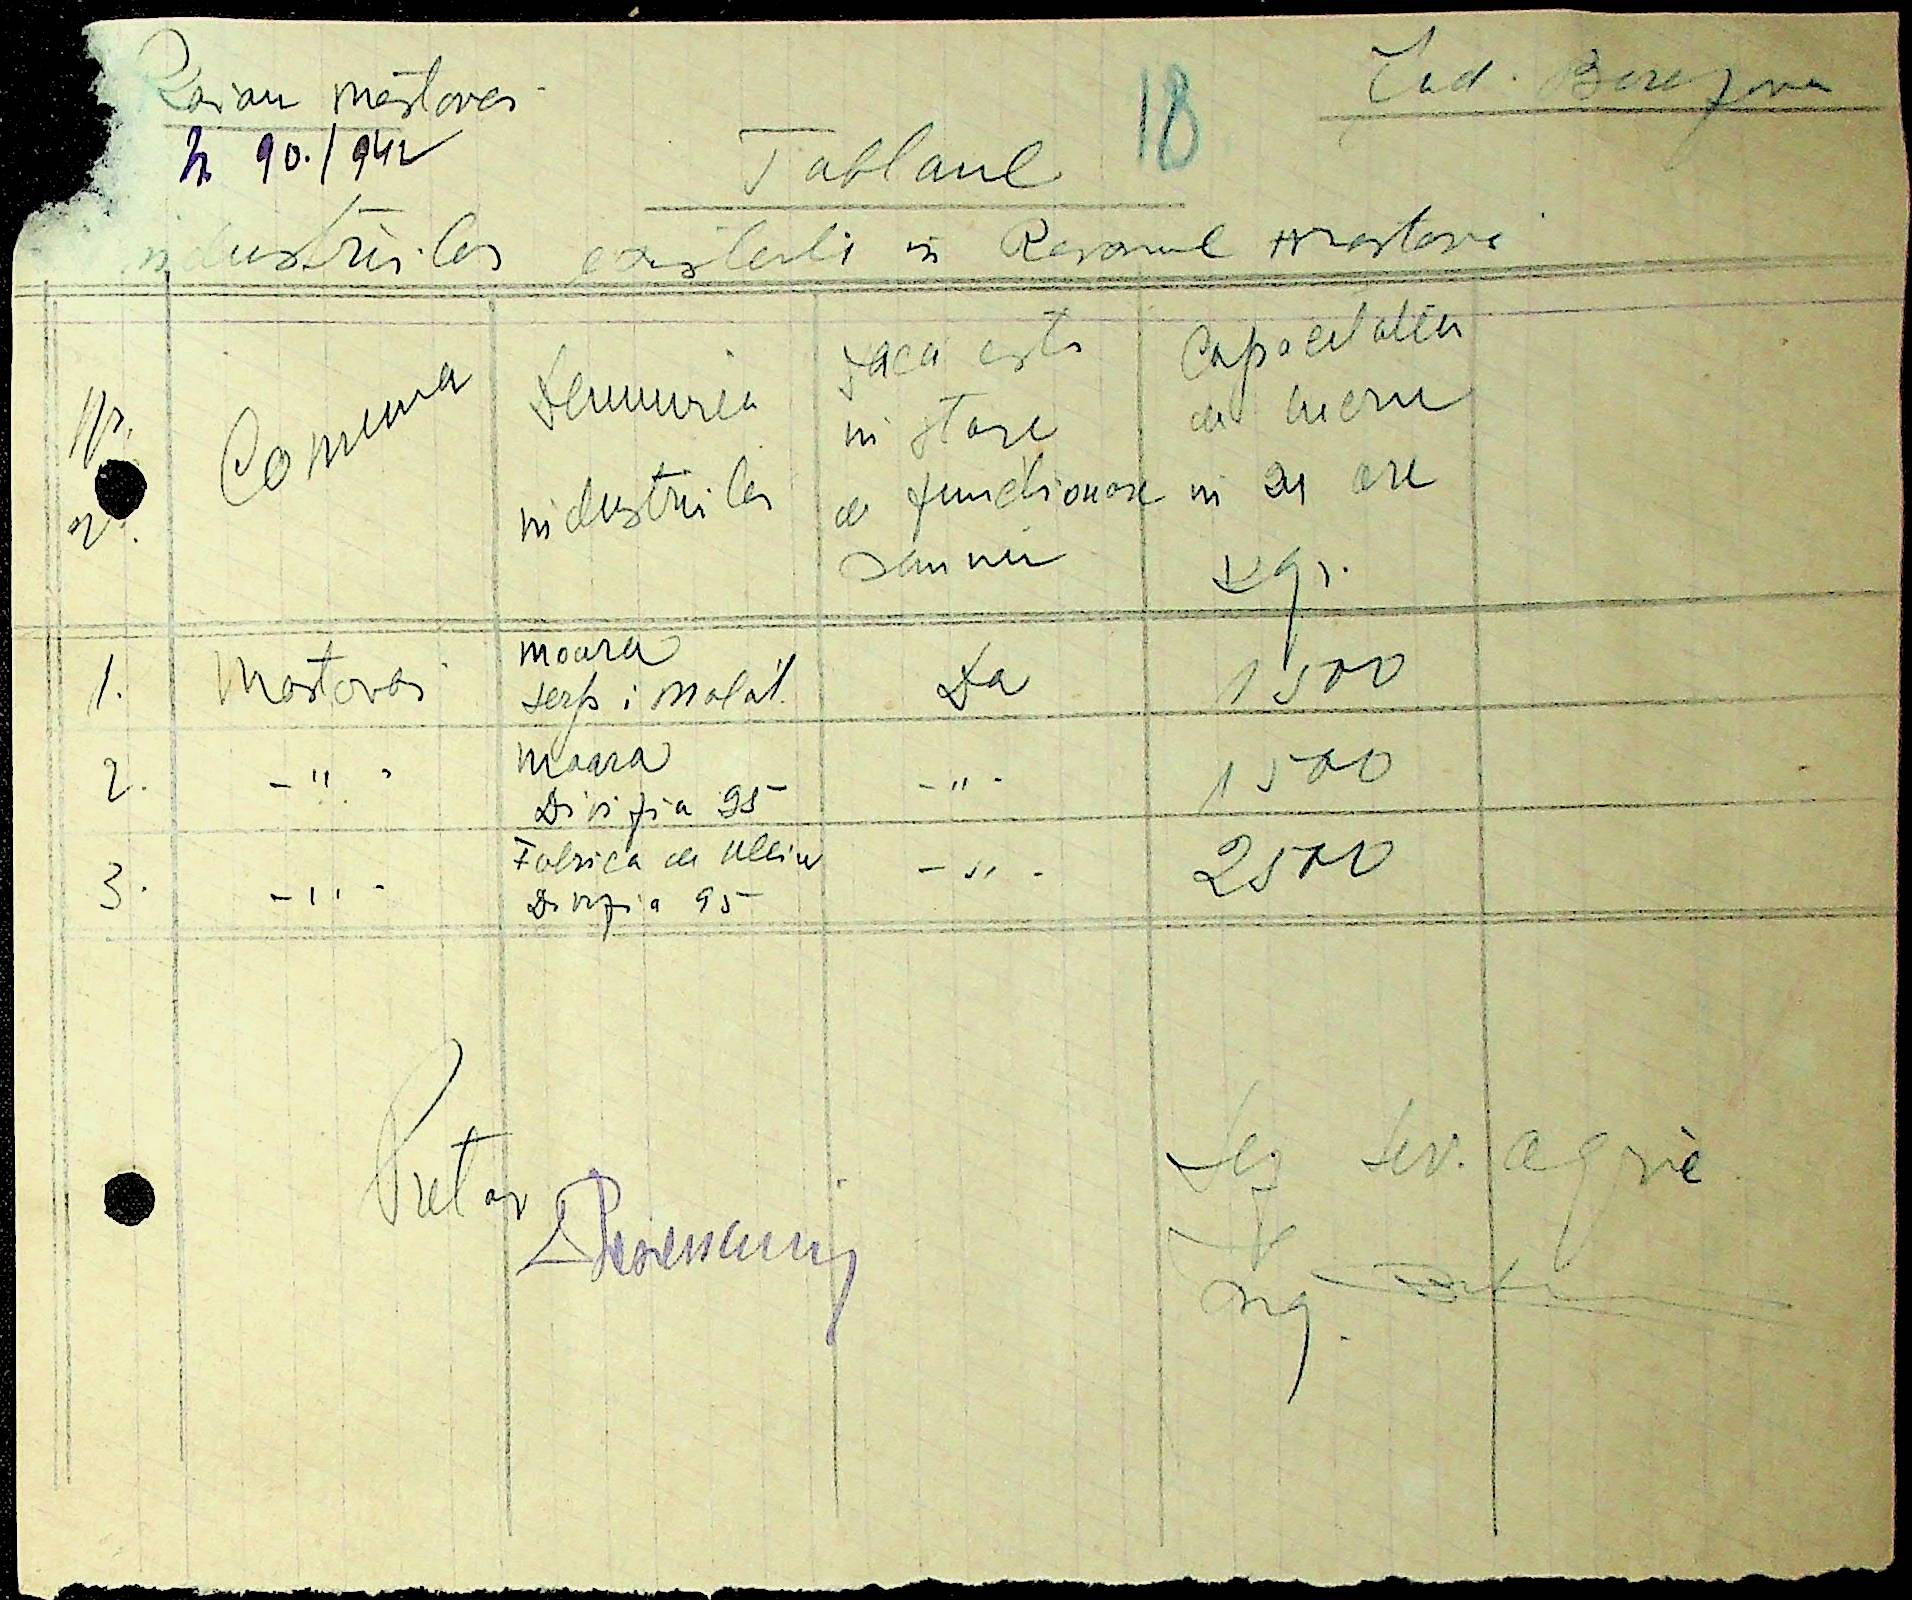 Raion Mostovoi
Jud. Berezovca
№ 90./942
18
Tabloul
industriilor existente in Raionul Mostovoi
Nr. Comuna Denumirea industriilor Daca este in stare de functionare Capacitatea de lucru in 24 ore Kgr.
1. Mostovoi moara Serp i Molot Da 1500
2. -"- Moara Divizia 95 -"- 1500
3. -"- Fabrica de Uleiu Divizia 95 -"- 2500
Pretor
Sef Ser. agric.
Ing.